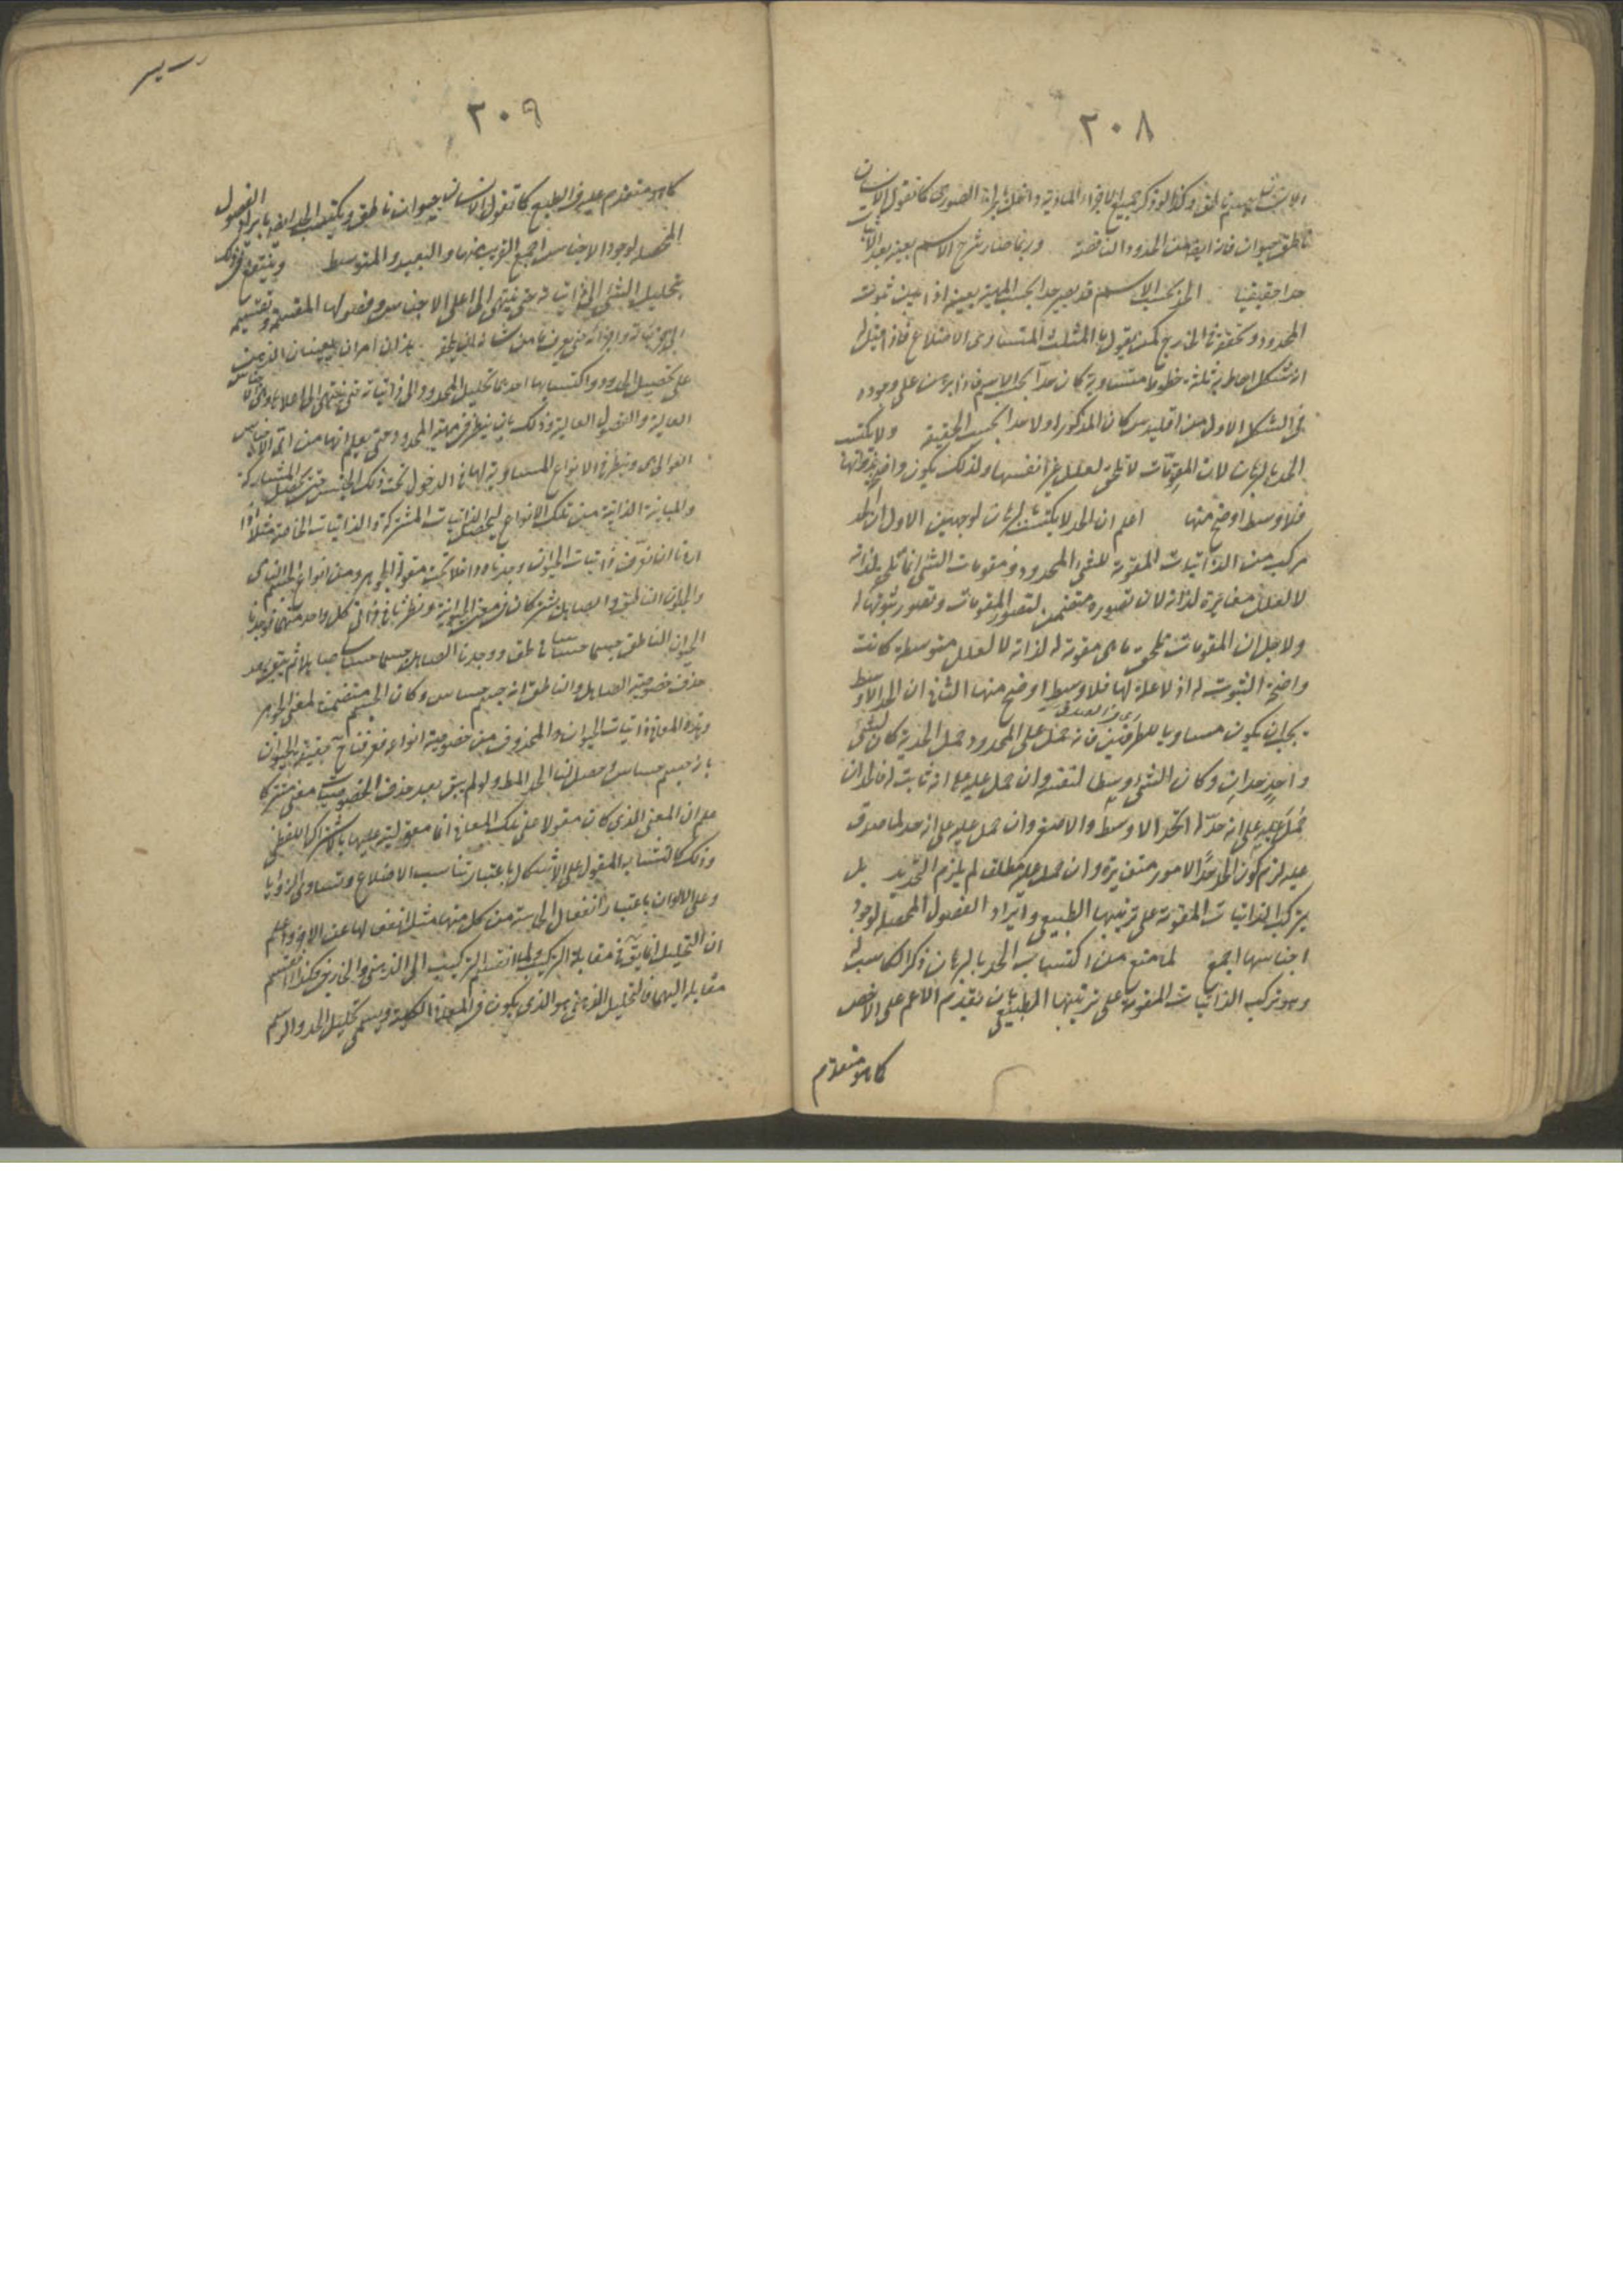 ٢٠٨
ناطق حيوان فانه ايضا من الحدود الناقصة وربما صار شرح الاسم بعينه بعد الاثبات
حدا حقيقيا الحد بحسب الاسم قد يصير حدا بحسب المهية بعينه اذا تبين ثبوت
المحدود وتحققه في الخارج كمن يقول ما المثلث المتساوي الاضلاع فاذا قيل له
انه شكل احاط به ثلثة خطوط متساوية كان حدا بحسب الاسم فاذا برهن على وجوده
في الشكل الاول من اقليدس كان المذكور اولا حدا بحسب الحقيقة ولا يكتسب
الحد بالبرهان لان المقومات لا تلحق لعلل غير انفسها ولذلك يكون واضح
فلا وسط اوضح منها اعلم ان الحد لا يكتسب بالبرهان لوجهين الاول ان الحد
مركب من الذاتيات المقومة للشيء المحدود ومقومات الشيء انما تلحقه لذاته
لا لعلل مغايرة لذاته لان تصوره متضمن لتصور المقومات وتصور ثبوتها له
ولاجل ان المقومات تلحق ما هي مقومة له لذاته لا لعلل متوسطة كانت
واضحة الثبوت له اذ لا علة لها فلا وسط اوضح منها الثاني ان الحد الاوسط
يجب ان يكون مساويا للطرفين فانه حمل على المحدود حمل الحدية كان لشيء
واحد حدان وكان الشيء وسطا لنفسه وان حمل عليه على انه ثابت له
حمل عليه على انه حد له اتحد الاوسط والاصغر وان حمل عليه على انه حد لما صدق
عليه لزم كون الحد حدا لامور متغايرة وان حمل عليه مطلقا لم يلزم التحديد بل
بتركيب الذاتيات المقومة على ترتيبها الطبيعي وايراد الفصول المحصلة لوجود
اجناسها اجمع لما منع من اكتساب الحد بالبرهان ذكر اكتسابه
وهو تركيب الذاتيات المقومة على ترتيبها الطبيعي بان يقدم الاعم على الاخص
كما هو متقدم
٢٠٩
كما هو متقدم عليه في الطبع كما تقول الانسان حيوان ناطق ويكتسب الحد ايضا بايراد الفصول
المحصلة لوجود الاجناس اجمع القريب منها والبعيد والمتوسط وينتفع في ذلك
بتحليل الشيء الى ذاتياته حتى ينتهي الى اعلى الاجناس وفصولها المقسمة وتقسيم
هذان امران يعينان الذهن
على تحصيل الحدود واكتسابها احدهما تحليل المحدود الى ذاتياته حتى ينتهي الى اعلاها وهي الاجناس
العالية والفصول العالية وذلك بان ينظر في مهية المحدود حتى يعلم انها من اي الاجناس
العوالي هي وينظر في الانواع المساوية لها في الدخول تحت ذلك الجنس حتى يحصل المشاركة
والمباينة الذاتية من تلك الانواع ليحصل الذاتيات المشتركة والذاتيات الخاصة مثلا اذا
اردنا ان نعرف ذاتيات الحيوان وجدناه داخلا تحت مقولة الجوهر ومن انواع الجسم النامي
والحيوان الناطق والصاهل يشتركان في معنى الحيوانية ونظرنا في ذاتي كل واحد منهما فوجدنا
الحيوان الناطق جسما حساسا ناطقا ووجدنا الصاهل جسما حساسا صاهلا ثم يبقى بعد
حذف خصوصية الصاهل والناطق انه جسم حساس وكان الجسم متضمنا لمعنى الجوهر
وهذه المعاني ذاتيات الحيوان والمحذوف من خصوصية انواعه
بانه جسم حساس وحصل لنا الحد المط ولو لم يبق بعد حذف الخصوصيات معنى مشتركا
علم ان المعنى الذي كان مقولا على تلك المعاني انما مقوليته عليها بالاشتراك اللفظي
وذلك كالتشابه المقول على الاشكال باعتبار تناسب الاضلاع وتساوي الزوايا
وعلى الالوان باعتبار انفعال الحاسة من كل منها مثل انفعالها عن الاخر واعلم
ان التحليل انما يق في مقابلة التركيب ولما انقسم التركيب الى الذهني والخارجي فكذا انقسم
مقابله اليهما فالتحليل الذهني هو الذي يكون في المعاني الكلية ويسمى تحليل الحد والرسم